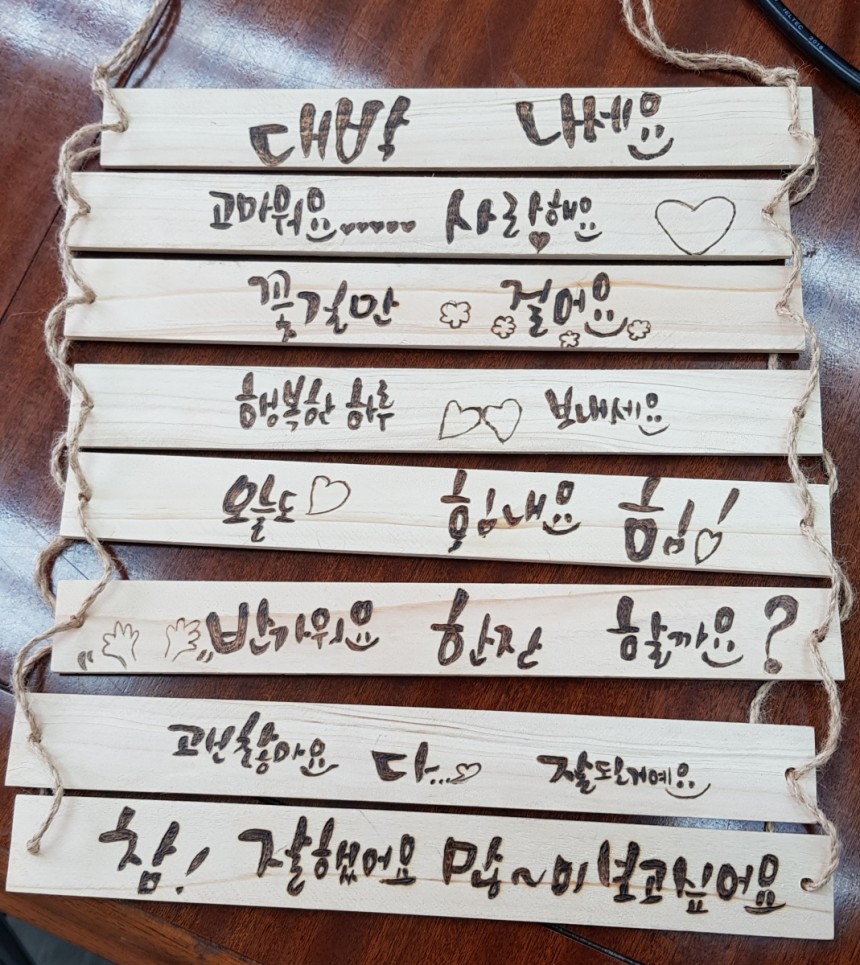 대박 나세요
고마워요..... 사랑해요
꽃길만 걸어요
행복한 하루 보내세요
오늘도 힘내요 힘!
반가워요 한잔 할까요?
다... 잘될거예요
참! 잘했어요 많~이 보고싶어요